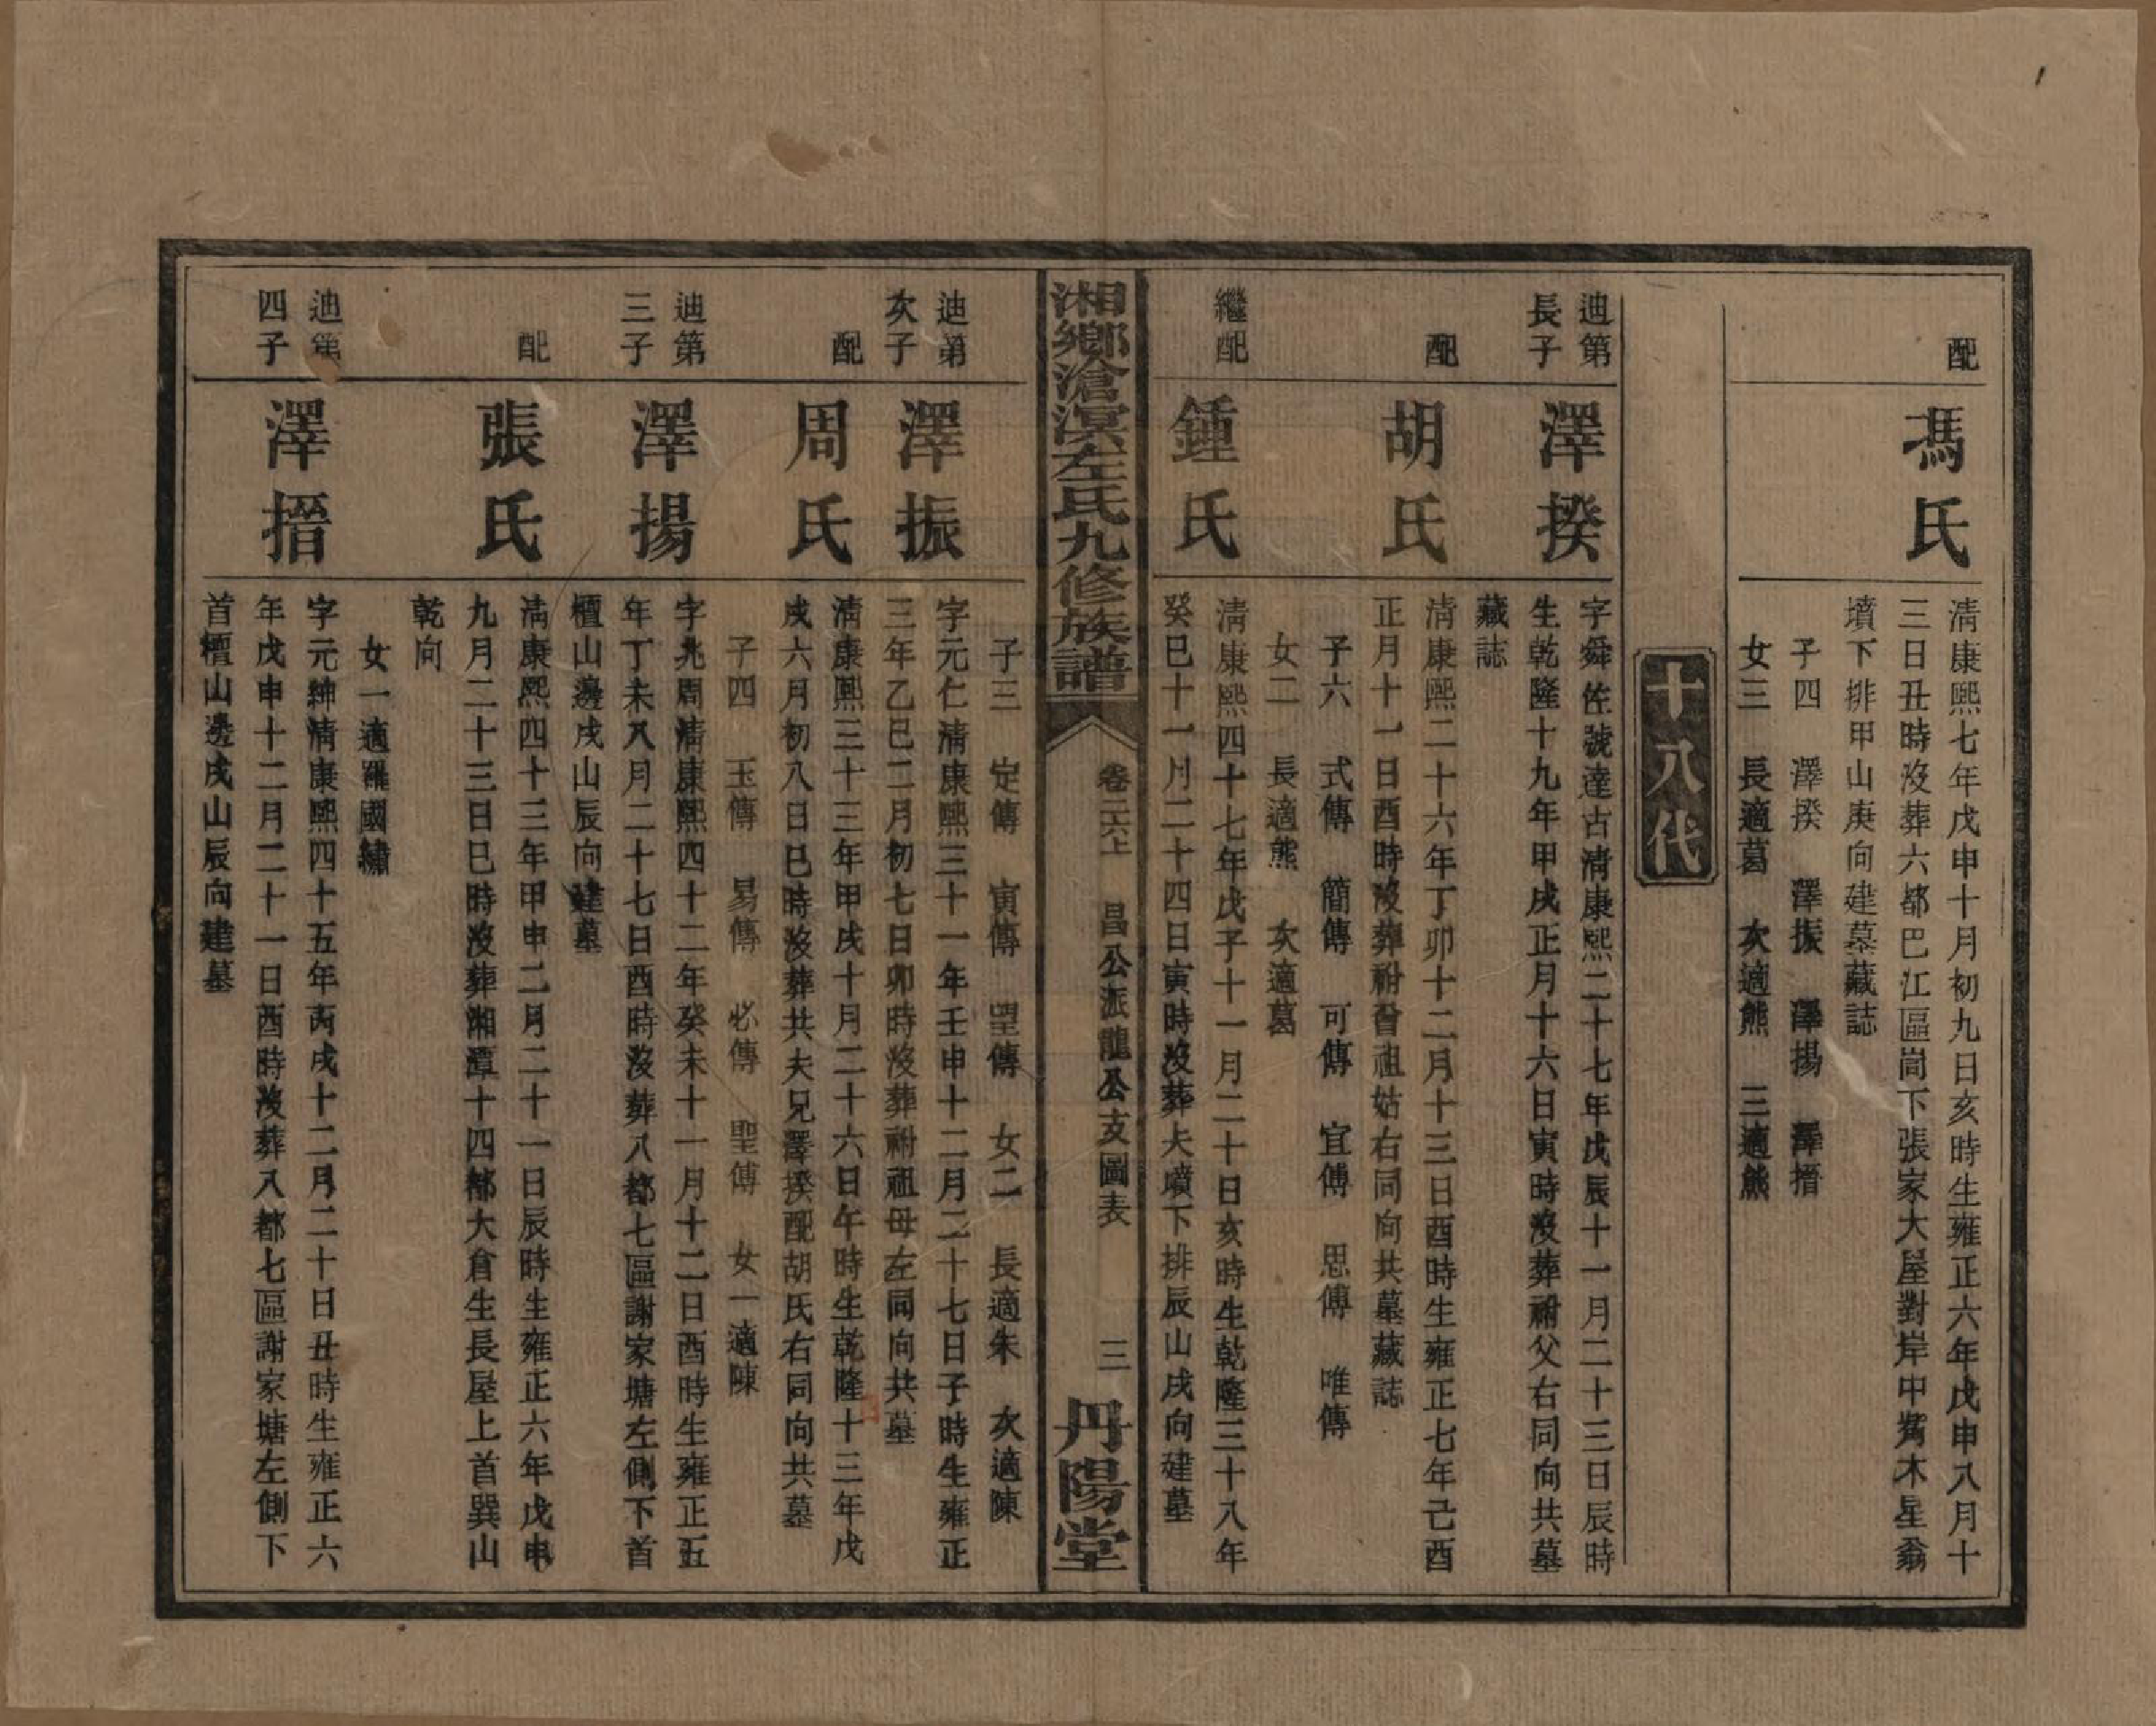 配
馮氏
清康熙七年戊申十月初九日亥時生雍正六年戊申八月十
三日丑時沒葬六都巴江區崗下張家大屋對岸中嘴木星翁
墳下排甲山庚向建墓藏誌
子四　澤揆　澤振　澤揚　澤搢
女三　長適葛　次適熊　三適熊
十八代
迪第
長子
澤揆
字舜佐號達古清康熙二十七年戊辰十一月二十三日辰時
生乾隆十九年甲戌正月十六日寅時沒葬祔父右同向共墓
藏誌
配
胡氏
清康熙二十六年丁卯十二月十三日酉時生雍正七年己酉
正月十一日酉時沒葬祔曾祖姑右同向共墓藏誌
子六　式傳　簡傳　可傳　宜傳　思傳　唯傳
女二　長適熊　次適葛
繼配
鍾氏
清康熙四十七年戊子十一月二十日亥時生乾隆三十八年
癸巳十一月二十四日寅時沒葬夫墳下排辰山戌向建墓
湘鄉滄溟左氏九修族譜
卷二六上　昌公派龍公支圖表　三
丹陽堂
子三　定傳　寅傳　望傳　女二　長適朱　次適陳
迪第
次子
澤振
字元仁清康熙三十一年壬申十二月二十七日子時生雍正
三年乙巳二月初七日卯時沒葬祔祖母左同向共墓
配
周氏
清康熙三十三年甲戌十月二十六日午時生乾隆十三年戊
戌六月初八日巳時沒葬共夫兄澤揆配胡氏右同向共墓
子四　玉傳　易傳　必傳　聖傳　女一適陳
迪第
三子
澤揚
字兆周清康熙四十二年癸未十一月十二日酉時生雍正五
年丁未八月二十七日酉時沒葬八都七區謝家塘左側下首
檀山邊戌山辰向建墓
配
張氏
清康熙四十三年甲申二月二十一日辰時生雍正六年戊申
九月二十三日巳時沒葬湘潭十四都大倉生長屋上首巽山
乾向
女一適羅國繡
迪第
四子
澤搢
字元紳清康熙四十五年丙戌十二月二十日丑時生雍正六
年戊申十二月二十一日酉時沒葬八都七區謝家塘左側下
首檀山邊戌山辰向建墓